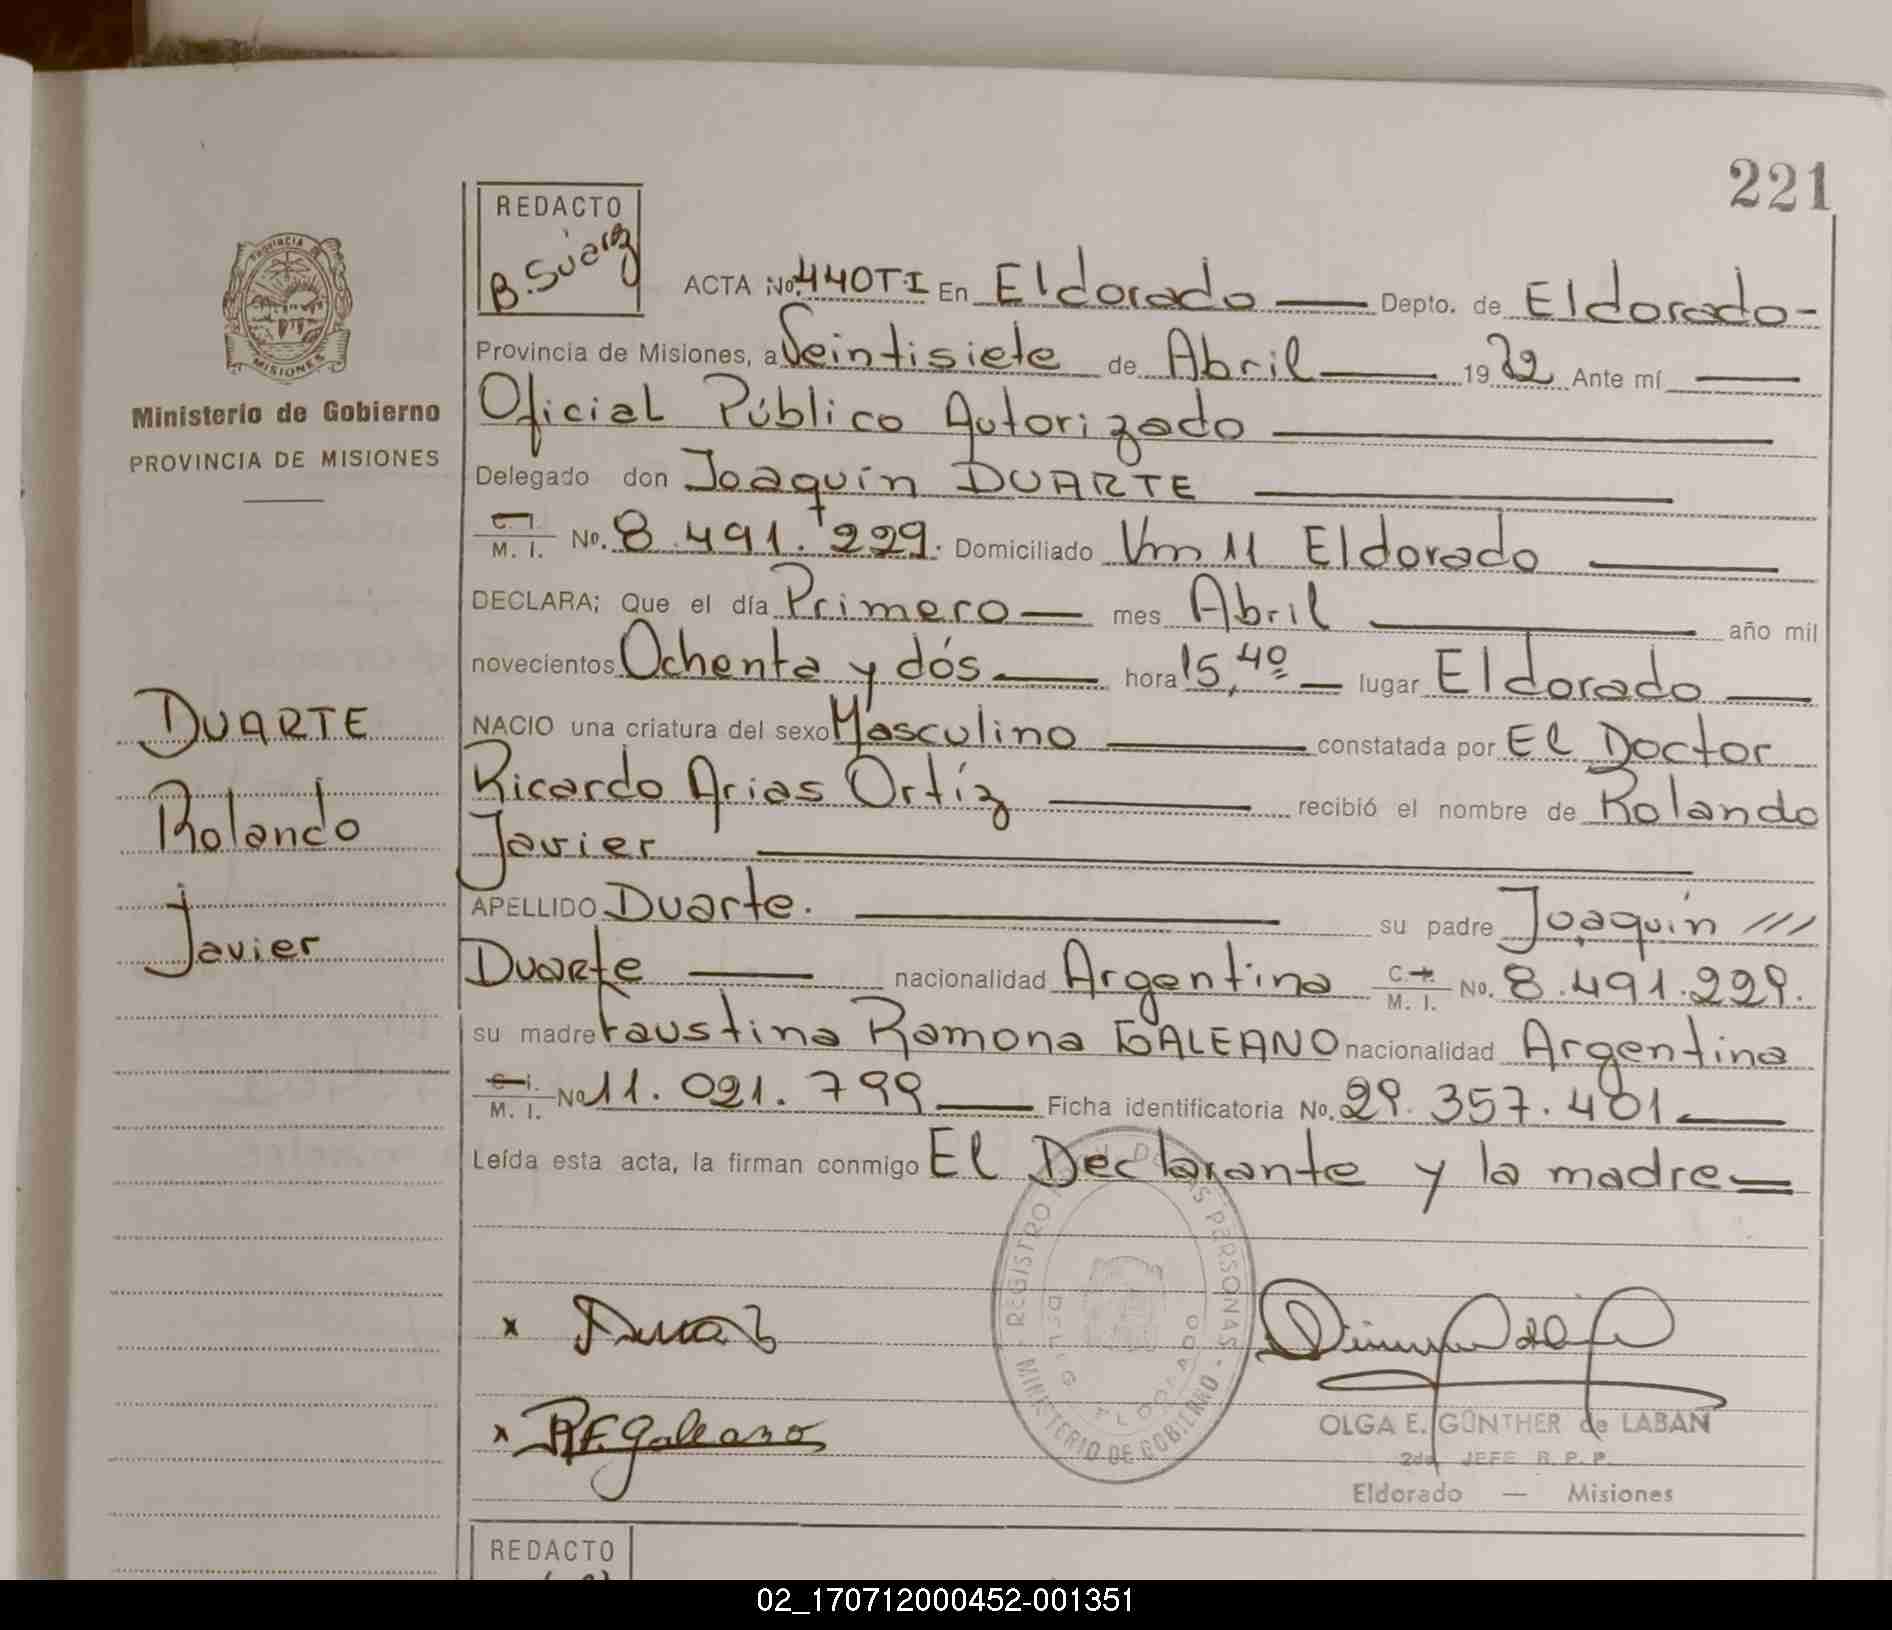 221
REDACTO
B. Suárez
PROVINCIA DE MISIONES
Ministerio de Gobierno
PROVINCIA DE MISIONES
ACTA No. 440 T.I En Eldorado Depto. de Eldorado-
Provincia de Misiones, a Veintisiete de Abril 1982 Ante mí
Oficial Público Autorizado
Delegado don Joaquín DUARTE
C. I. M. I. No. 8.491.229. Domiciliado Km 11 Eldorado
DECLARA; Que el día Primero mes Abril año mil
novecientos Ochenta y dós hora 15,40 lugar Eldorado
NACIO una criatura del sexo Masculino constatada por El Doctor
Ricardo Arias Ortíz recibió el nombre de Rolando
Javier
APELLIDO Duarte. su padre Joaquín
Duarte nacionalidad Argentina C. I. M. I. No. 8.491.229.
su madre Faustina Ramona GALEANO nacionalidad Argentina
C. I. M. I. No 11.021.799 Ficha identificatoria No. 29.357.401
Leída esta acta, la firman conmigo El Declarante y la madre
DUARTE
Rolando
Javier
REGISTRO DE LAS PERSONAS - MINISTERIO DE GOBIERNO
x
x R F Galeano
OLGA E. GÜNTHER de LABAN
2da. JEFE R. P. P.
Eldorado — Misiones
REDACTO
02_170712000452-001351